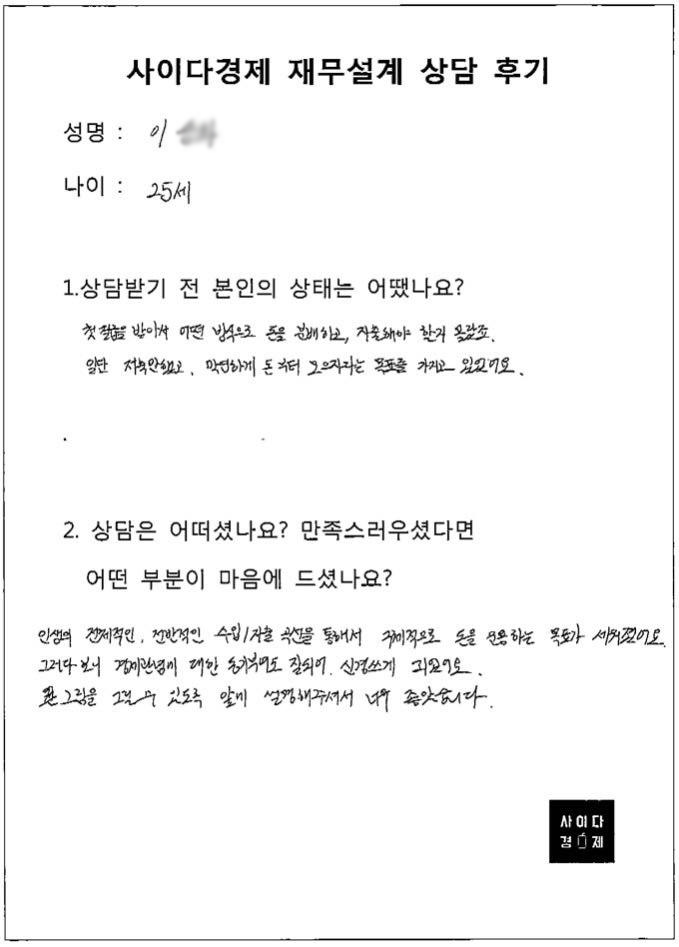 사이다경제 재무설계 상담 후기
성명 : 이
나이 : 25세
1.상담받기 전 본인의 상태는 어땠나요?
첫 월급을 받아서 어떤 방식으로 돈을 분배하고, 지출해야 할지 몰랐죠.
일단 저축안하고, 막연하게 돈부터 모으자라는 목표를 가지고 있었어요.
2. 상담은 어떠셨나요? 만족스러우셨다면
어떤 부분이 마음에 드셨나요?
인생의 전체적인, 전반적인 수입/지출 곡선을 통해서 구체적으로 돈을 운용하는 목표가 세워졌어요.
그러다 보니 경제관념에 대한 동기부여도 잘되어, 신경쓰게 되었어요.
큰 그림을 그릴 수 있도록 알게 설명해주셔서 너무 좋았습니다.
사이다
경제